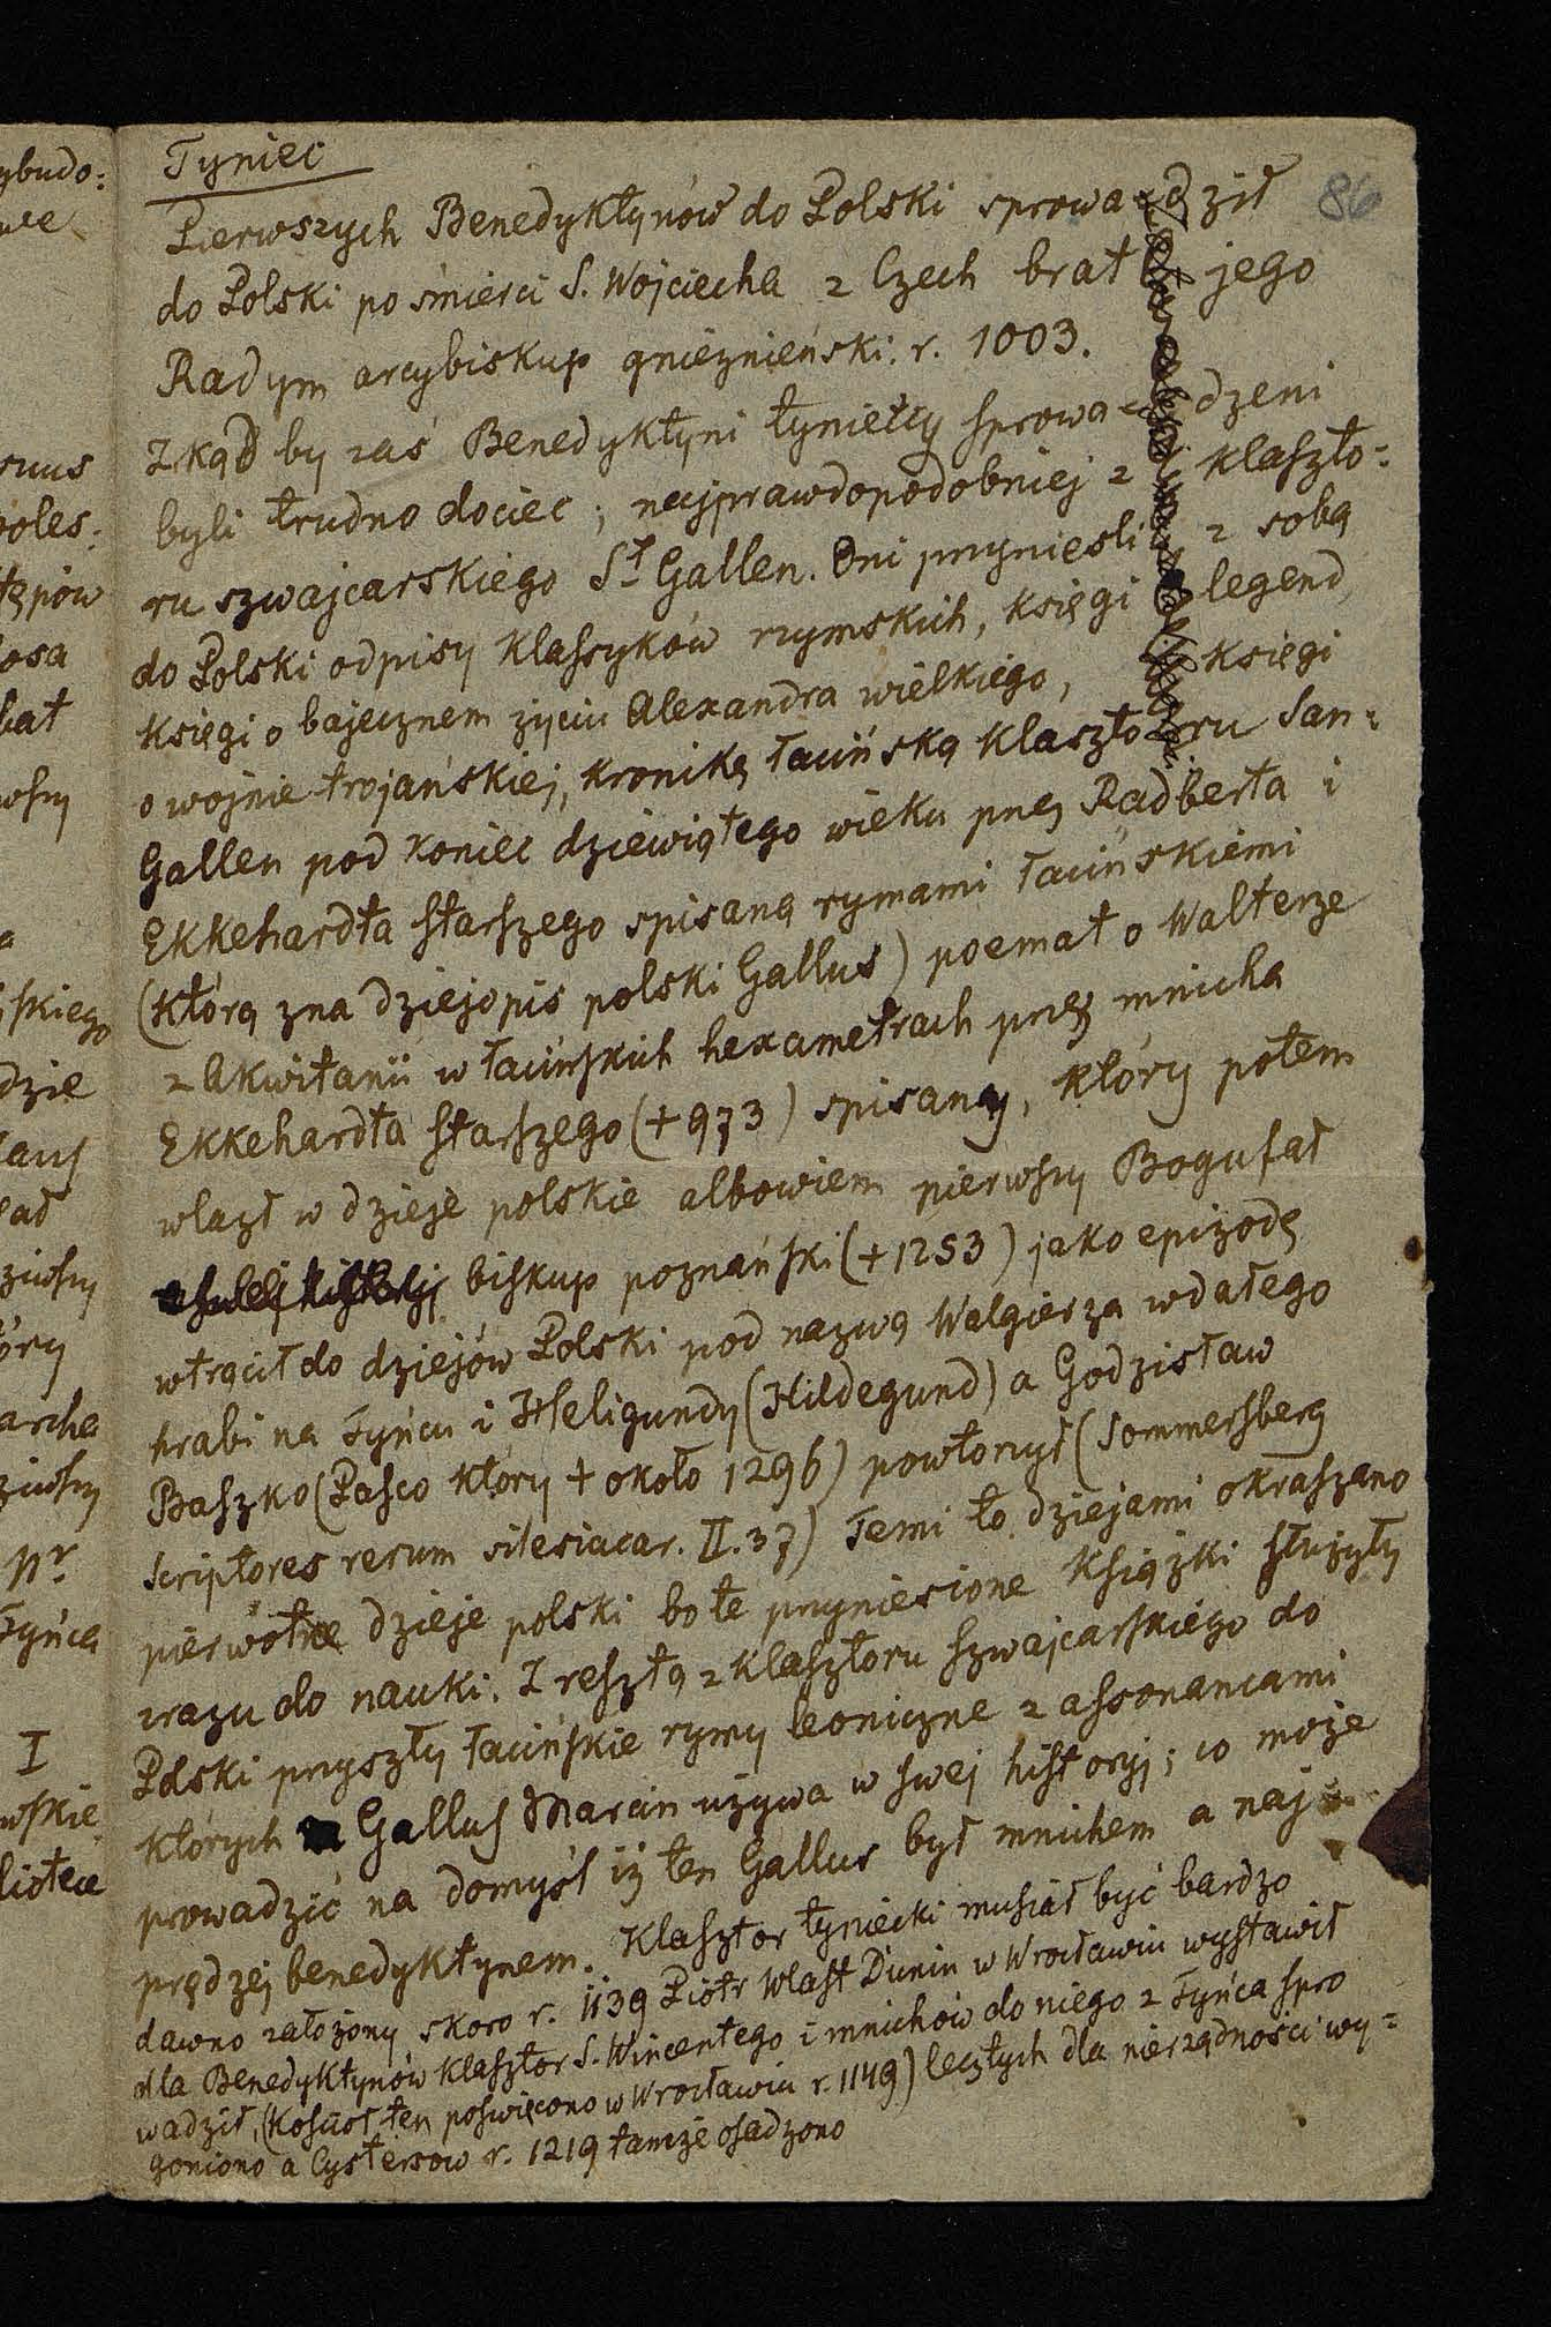 Tyniec
86
Pierwszych Benedyktynów do Polski sprowadził
do Polski po śmierci S. Wojciecha z Czech brat jego
Radym arcybiskup gnieźnieński. r. 1003.
Zkąd by zaś Benedyktyni tynieccy sprowadzeni
byli trudno dociec; najprawdopodobniej z klaszto:
ru szwajcarskiego St Gallen. Oni przynieśli z sobą
do Polski odpisy klassyków rzymskich, księgi legend,
księgi o bajecznem życiu Alexandra wielkiego, księgi
o wojnie trojańskiej, kronikę łacińską klasztoru San:
Gallen pod koniec dziewiątego wieku przez Radberta i
Ekkehardta starszego spisaną rymami łacińskiemi
(którą zna dziejopis polski Gallus) poemat o Walterze
z Akwitanii w łacińskich hexametrach przez mnicha
Ekkehardta starszego (+ 973) spisany, który potem
wlazł w dzieje polskie albowiem pierwszy Bogufał
biskup poznański (+ 1253) jako epizodę
wtrącił do dziejów Polski pod nazwą Walgierza wdałego
hrabi na Tyńcu i Heligundy (Hildegund) a Godzisław
Baszko (Pasco który + około 1296) powtorzył (Sommersberg
scriptores rerum silesiacar. II. 37) Temi to dziejami okraszano
pierwotne dzieje polski bo te przyniesione książki służyły
zrazu do nauki. Z resztą z klasztoru szwajcarskiego do
Polski przyszły łacińskie rymy leoniczne z assonancami
których Gallus Marcin używa w swej historyj; co może
prowadzić na domysł iż ten Gallus był mnichem a naj
prędzej benedyktynem. Klasztor tyniecki musiał być bardzo
dawno założony skoro r. 1139 Piotr Wlast Dunin w Wrocławiu wystawił
dla Benedyktynów klasztor S. Wincentego i mnichów do niego z Tyńca spro
wadził, (Kościoł ten poświęcono w Wrocławiu r. 1149) lecz tych dla nierządności wy=
goniono a Cystersow r. 1219 tamże osadzono